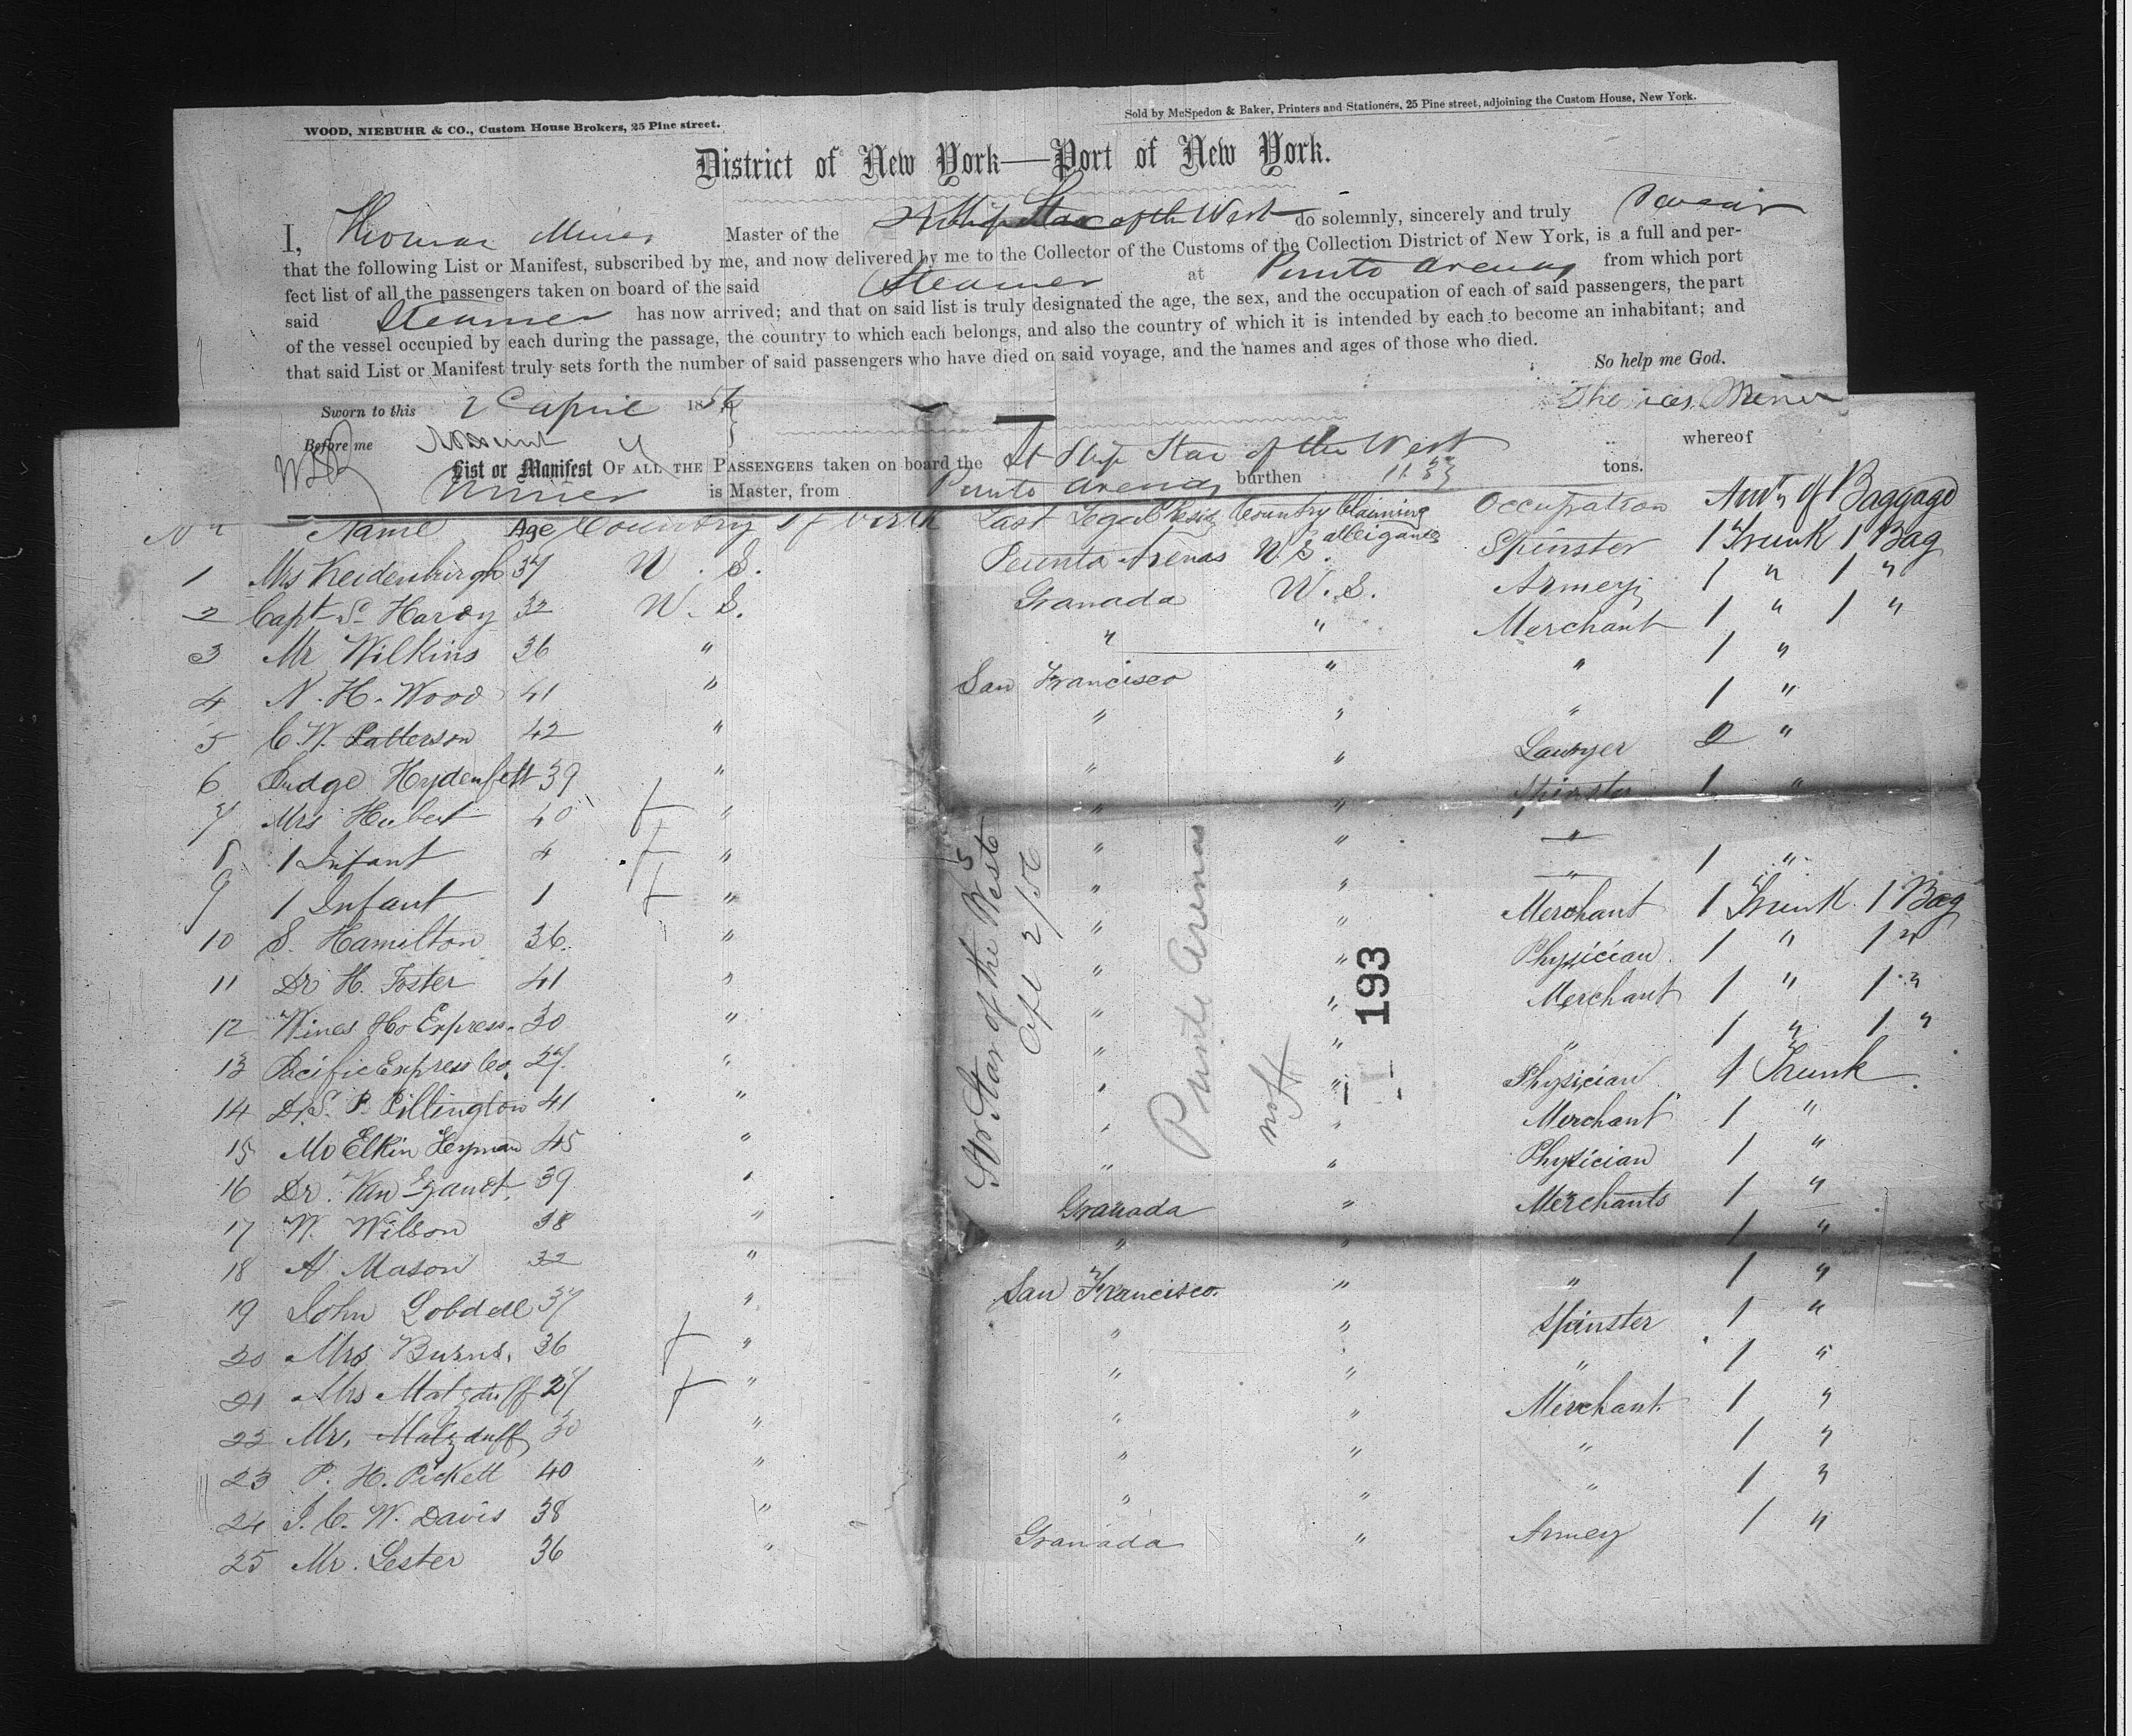 WOOD, NIEBUHR & CO., Custom House Brokers, 25 Pine street.
Sold by McSpedon & Baker, Printers and Stationers, 25 Pine street, adjoining the Custom House, New York.
District of New York—Port of New York.
I, Thomas Miner Master of the Str Ship Star of the West do solemnly, sincerely and truly swear
that the following List or Manifest, subscribed by me, and now delivered by me to the Collector of the Customs of the Collection District of New York, is a full and per-
fect list of all the passengers taken on board of the said Steamer at Punto Arenas from which port
said Steamer has now arrived; and that on said list is truly designated the age, the sex, and the occupation of each of said passengers, the part
of the vessel occupied by each during the passage, the country to which each belongs, and also the country of which it is intended by each to become an inhabitant; and
that said List or Manifest truly sets forth the number of said passengers who have died on said voyage, and the names and ages of those who died.
So help me God.
Sworn to this 2 April 1856 Thomas Miner
Before me
List or Manifest OF ALL THE PASSENGERS taken on board the St Ship Star of the West whereof
Miner is Master, from Punto Arenas burthen tons.
No Name Age Country of birth Last Legal Resid Country Claiming alleigance Occupation Amt of Baggage
1 Mrs Keidenburgh 37 U.S. Puunta Arenas U.S. Spinster 1 Trunk 1 Bag
2 Capt S. Hardy 32 U.S. Granada U.S. Armey 1 " 1 "
3 Mr Wilkins 36 " " " Merchant 1 " 1 "
4 N. H. Wood 41 " San Francisco " " 1 "
5 C W. Patterson 42 " " " " 1 "
6 Judge Hydenfelt 39 " " " Lawyer 2 "
7 Mrs Hubert 40 " " " Spinster 1 "
8 1 Infant 4 " " " "
9 1 Infant 1 " " " " 1 "
10 S. Hamilton 36. " " " Merchant 1 Trunk 1 Bag
11 Dr H. Foster 41 " " " Physician 1 " 1 "
12 Wines Ho Express. 30 " " " Merchant 1 " 1 "
13 Pacific Express Co. 27. " " " " 1 " 1 "
14 Dr. S. P. Pillington 41 " " " Physician 1 Trunk
15 Mo Elkin Heyman 45 " " " Merchant 1 "
16 Dr. Van Zandt. 39 " " " Physician 1 "
17 W. Wilson 38 " Granada " Merchants 1 "
18 A Mason 32 " " " 1 "
19 John Lobdell 37 " San Francisco. " " 1 "
20 Mrs Burns. 36 " " " Spinster 1 "
21 Mrs Malzduff 27 " " " " 1 "
22 Mr. Malzduff 30 " " " Merchant. 1 "
23 P. H. Pickett 40 " " " " 1 "
24 J. C. W. Davis 38 " " " " 1 "
25 Mr. Lester 36 " Granada " Armey 1 "
Str Star of the West
Apl 2/56
Punta Arenas
193